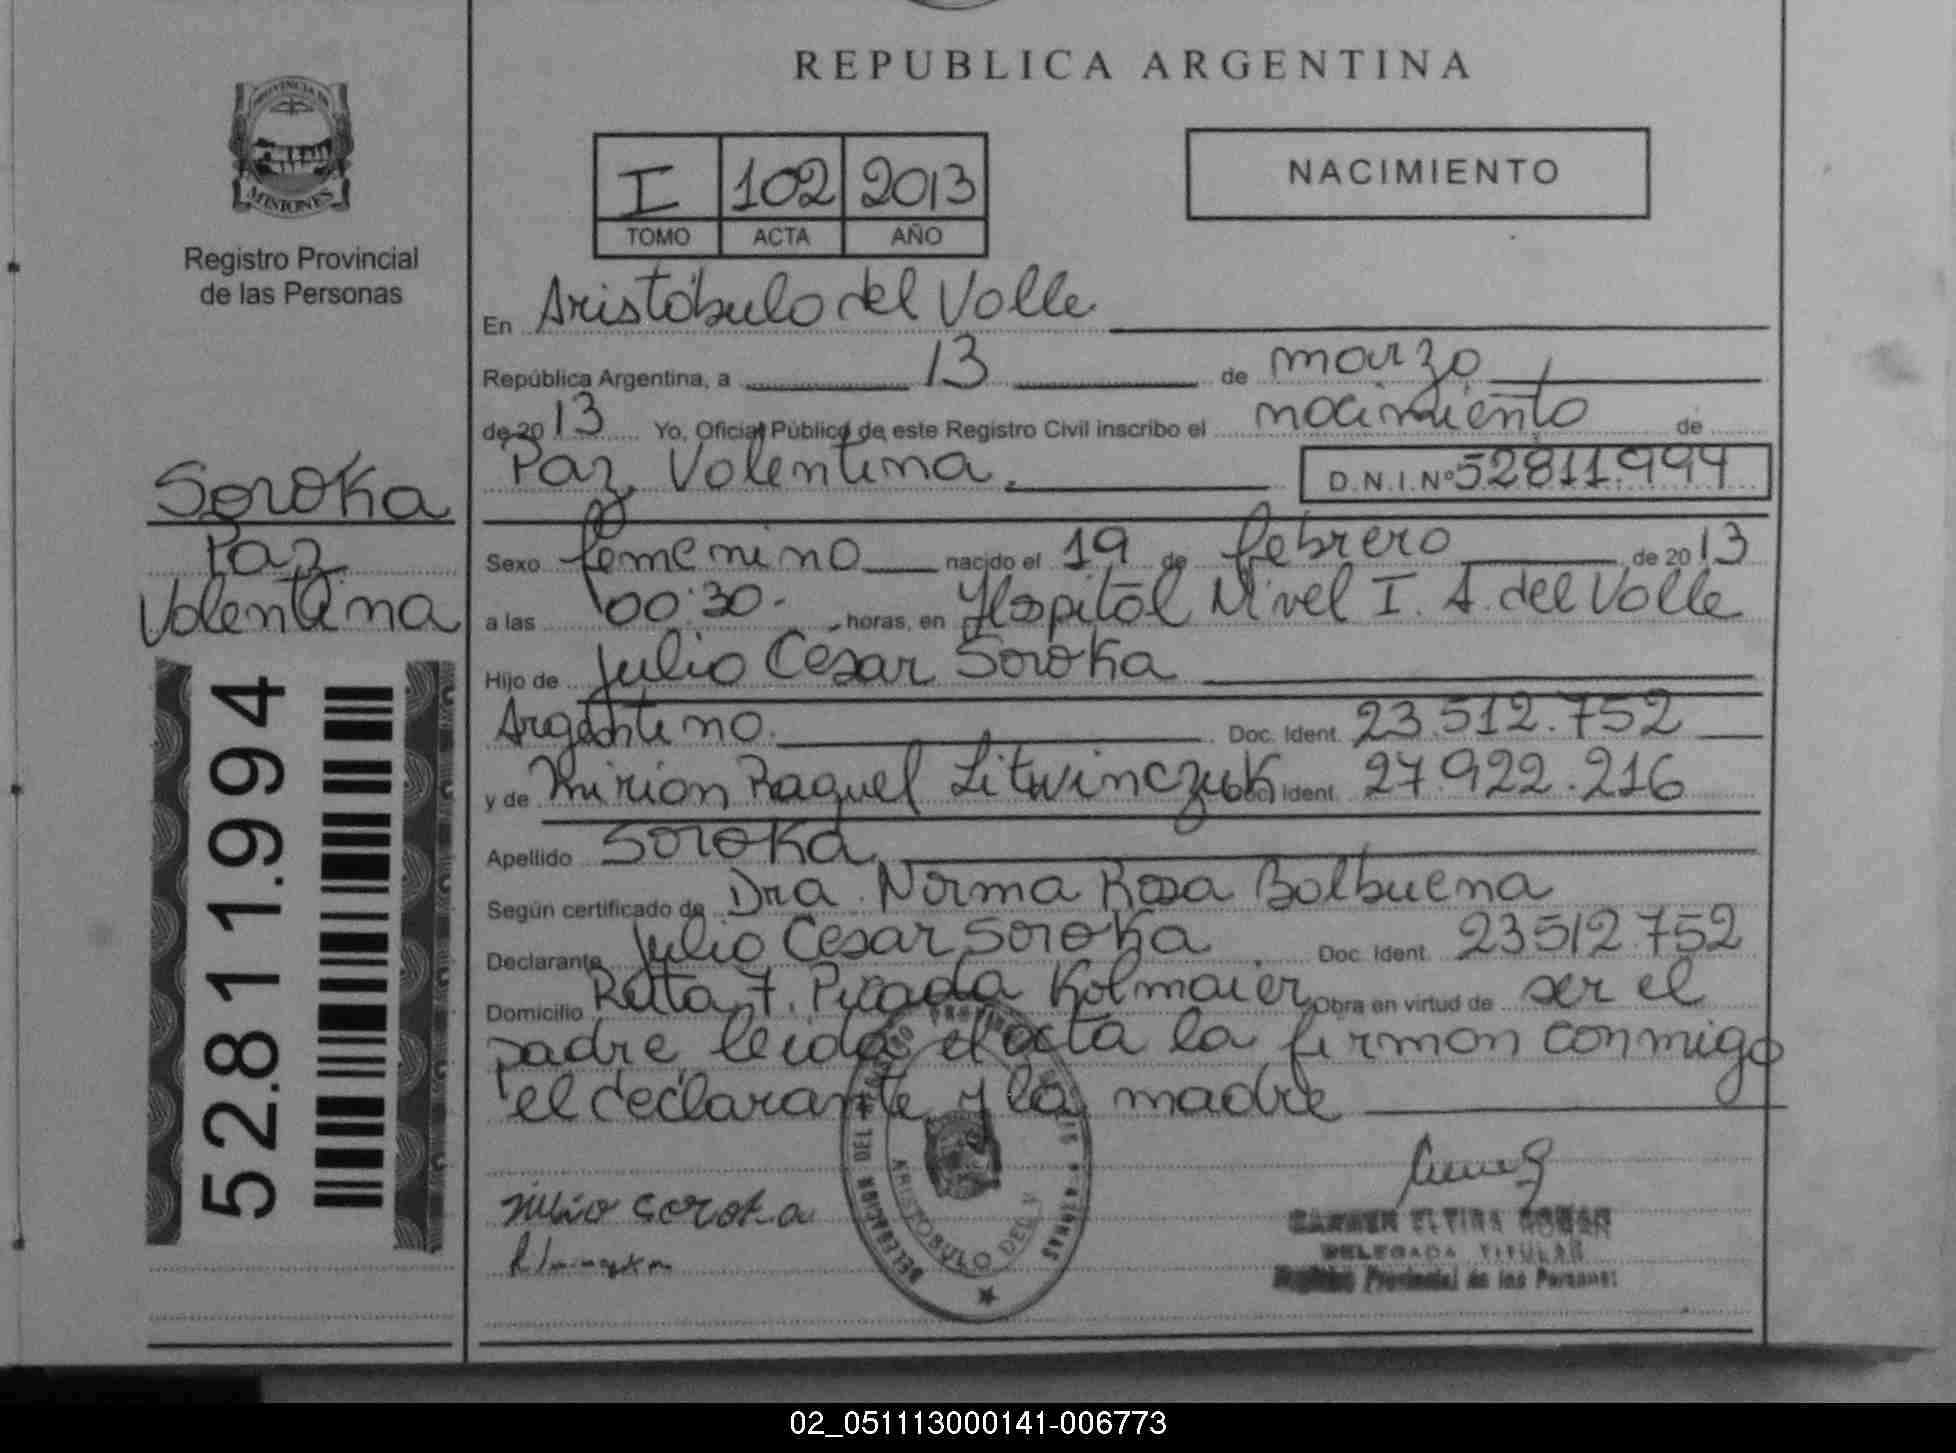 REPUBLICA ARGENTINA
PROVINCIA DE
MISIONES
Registro Provincial
de las Personas
I 102 2013
TOMO ACTA AÑO
NACIMIENTO
En Aristóbulo del Valle
República Argentina, a 13 de marzo
de 2013 Yo, Oficial Público de este Registro Civil inscribo el nacimiento de
Paz Valentina. D.N.I.Nº 52811.994
Soroka
Paz
Valentina
52.811.994
Sexo femenino nacido el 19 de febrero de 2013
a las 00:30. horas, en Hospital Nivel I. A. del Valle
Hijo de Julio César Soroka
Argentino. Doc. Ident. 23.512.752
y de Mirian Raquel Litwinczuk Doc. Ident. 27.922.216
Apellido Soroka
Según certificado de Dra. Norma Rosa Balbuena
Declarante Julio César Soroka Doc. Ident. 23512.752
Domicilio Ruta 7. Picada Kolmaier Obra en virtud de ser el
padre leida el acta la firman conmigo
el declarante y la madre
DELEGACION DEL
ARISTOBULO DEL V
Julio Soroka
CARMEN ELVIRA
DELEGADA TITULAR
Registro Provincial de las Personas
02_051113000141-006773